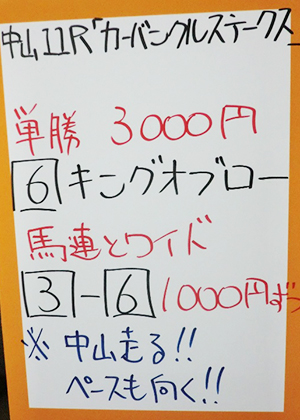 中山11R「カーバンクルステークス
単勝 3000円
6 キングオブロー
馬連とワイド
3-6 1000円ずつ
※中山走る!!
ペースも向く!!